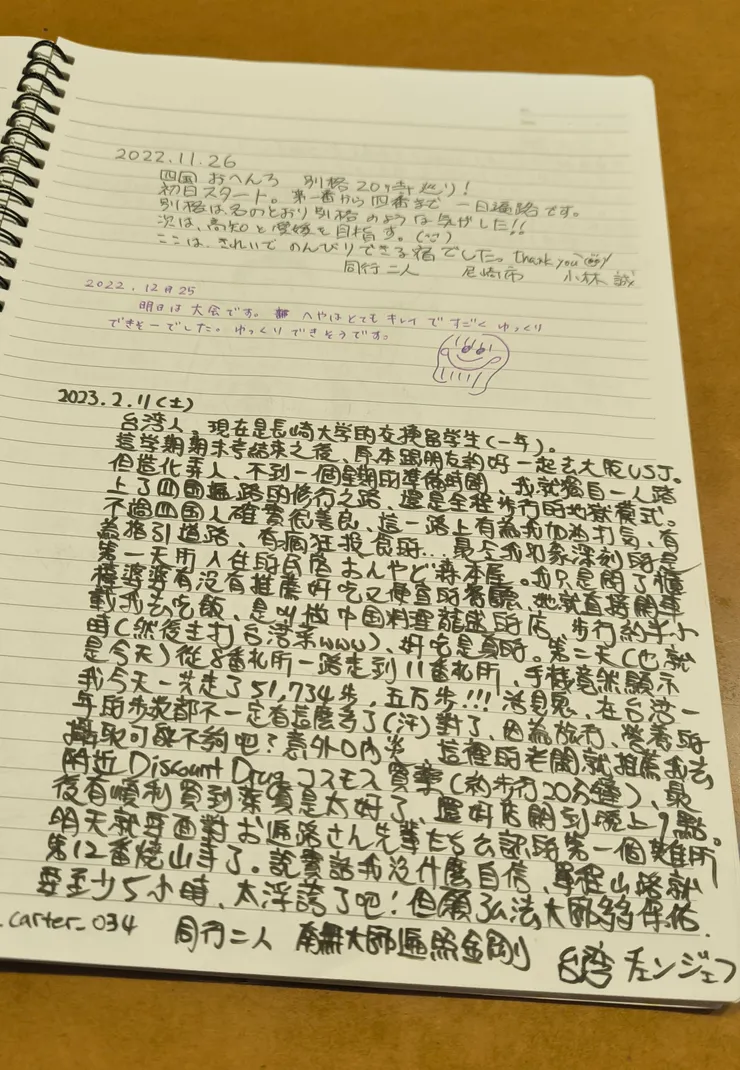 2022.11.26
四国おへんろ 別格20寺巡り!
初日スタート。第一番から四番まで 一日遍路です。
別格は、名のとおり別格のような気がした!!
次は、高知と愛媛を目指す。(^^)
ここは、きれいで のんびりできる宿でした。thank you
同行二人 尼崎市 小林 誠
2022.12月25
明日は大会です。 へやはとてもキレイですごくゆっくり
できそーでした。ゆっくりできそうです。
2023.2.11(土)
台湾人、現在是長崎大学的交換留学生(一年)。
這学期期末考結束之後、原本跟朋友約好一起去大阪USJ。
但造化弄人、不到一個星期的準備時間、我就獨自一人踏
上了四國遍路的修行之路、還是全程步行的地獄模式。
不過四国人確實很善良、這一路上有為我加油打氣、有
為指引道路、有瘋狂投食的...最令我印象深刻的是
第一天所入住的民宿 おんやど森本屋。我只是問了櫃
檯婆婆有沒有推薦好吃又便宜的餐廳、她就直接開車
載我去吃飯、是叫做中国料理龍盛的店、步行約半小
時(然後主打台湾菜www)、好吃是真的。第二天(也就
是今天)從8番札所一路走到11番札所、手機竟然顯示
我今天一共走了51,734步、五万步!!!活見鬼、在台湾一
年的步數都不一定有這麼多了(汗)對了、因為旅行、營養的
攝取可能不夠吧?意外口內炎、這裡的老闆就推薦我去
附近Discount Drug コスモス買藥(約步行20分鐘)、最
後有順利買到藥實是太好了、還好店開到晚上9點。
明天就要面對お遍路さん先輩たち公認的第一個難所
第12番焼山寺了。說實話我沒什麼自信、單程山路就
要至少5小時、太浮誇了吧!但願弘法大師能夠保佑.
.carter_034 同行二人 南無大師遍照金剛 台湾 チェンジェフ